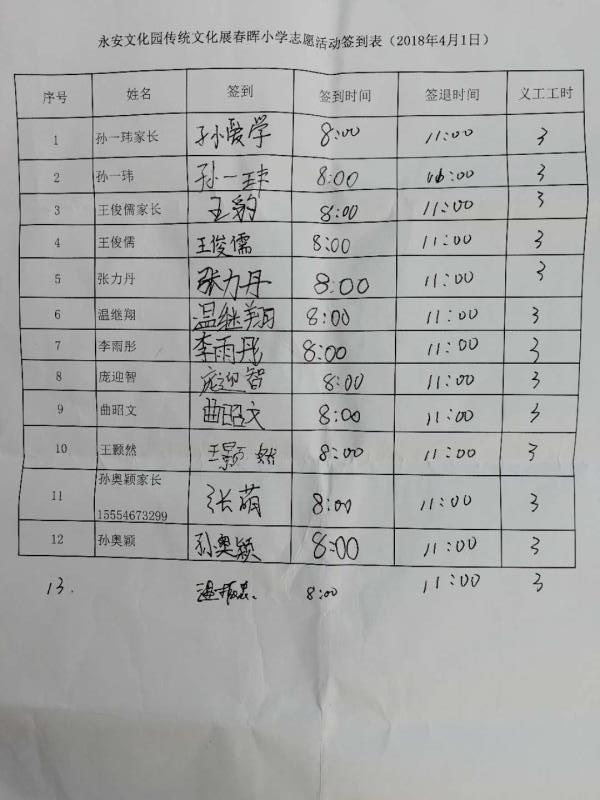 永安文化园传统文化展春晖小学志愿活动签到表（2018年4月1日）
序号 姓名 签到 签到时间 签退时间 义工工时
1 孙一玮家长 孙爱学 8:00 11:00 3
2 孙一玮 孙一玮 8:00 :00 3
3 王俊儒家长 王豹 8:00 11:00 3
4 王俊儒 王俊儒 8:00 11:00 3
5 张力丹 张力丹 8:00 11:00 3
6 温继翔 温继翔 8:00 11:00 3
7 李雨彤 李雨彤 8:00 11:00 3
8 庞迎智 庞迎智 8:00 11:00 3
9 曲昭文 曲昭文 8:00 11:00 3
10 王颢然 王颢然 8:00 11:00 3
孙奥颖家长
11 张萌 8:00 11:00 3
15554673299
12 孙奥颖 孙奥颖 8:00 11:00 3
13. 8:00 11:00 3